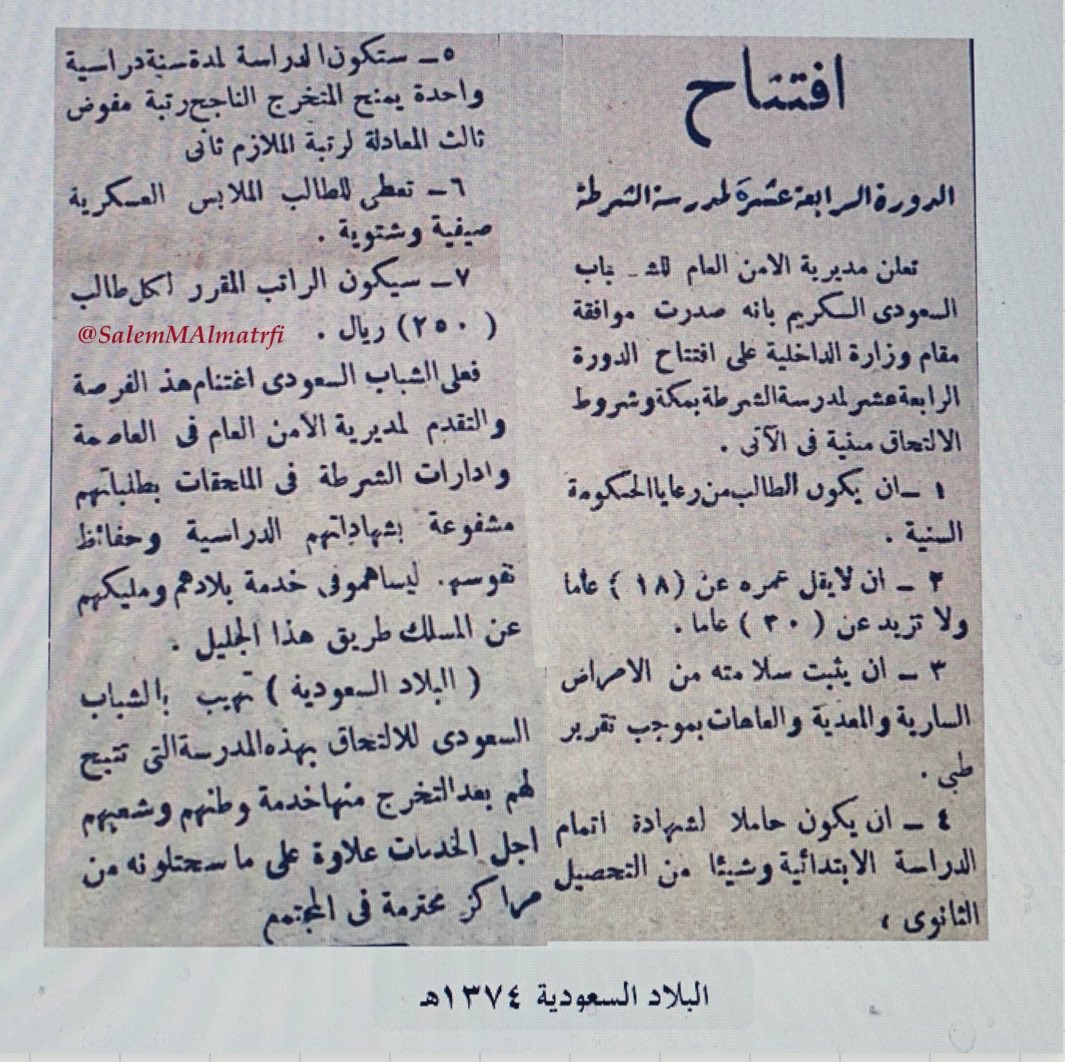 افتتاح
الدورة الرابعة عشرة لمدرسة الشرطة
تعلن مديرية الامن العام للشباب
السعودى الكريم بانه صدرت موافقة
مقام وزارة الداخلية على افتتاح الدورة
الرابعة عشر لمدرسة الشرطة بمكة وشروط
الالتحاق مبنية فى الآتى .
١ – ان يكون الطالب من رعايا الحكومة
السنية .
٢ – ان لا يقل عمره عن ( ١٨ ) عاما
ولا تزيد عن ( ٣٠ ) عاما .
٣ – ان يثبت سلامته من الامراض
السارية والمعدية والعاهات بموجب تقرير
طبى .
٤ – ان يكون حاملا لشهادة اتمام
الدراسة الابتدائية وشيئا من التحصيل
الثانوى ،
٥ – ستكون الدراسة لمدة سنة دراسية
واحدة يمنح المتخرج الناجح رتبة مفوض
ثالث المعادلة لرتبة الملازم ثانى
٦ – تعطى للطالب الملابس العسكرية
صيفية وشتوية .
٧ – سيكون الراتب المقرر لكل طالب
( ٢٥٠ ) ريال .
@SalemMAlmatrfi
فعلى الشباب السعودى اغتنام هذ الفرصة
والتقدم لمديرية الأمن العام فى العاصمة
وادارات الشرطة فى الملحقات بطلباتهم
مشفوعة بشهاداتهم الدراسية وحفائظ
نفوسهم . ليساهمو فى خدمة بلادهم ومليكهم
عن المسلك طريق هذا الجليل .
( البلاد السعودية ) تهيب بالشباب
السعودى للالتحاق بهذه المدرسة التى تتيح
لهم بعد التخرج منها خدمة وطنهم وشعبهم
اجل الخدمات علاوة على ما سيحتلونه من
مراكز محترمة فى المجتمع
البلاد السعودية ١٣٧٤هـ